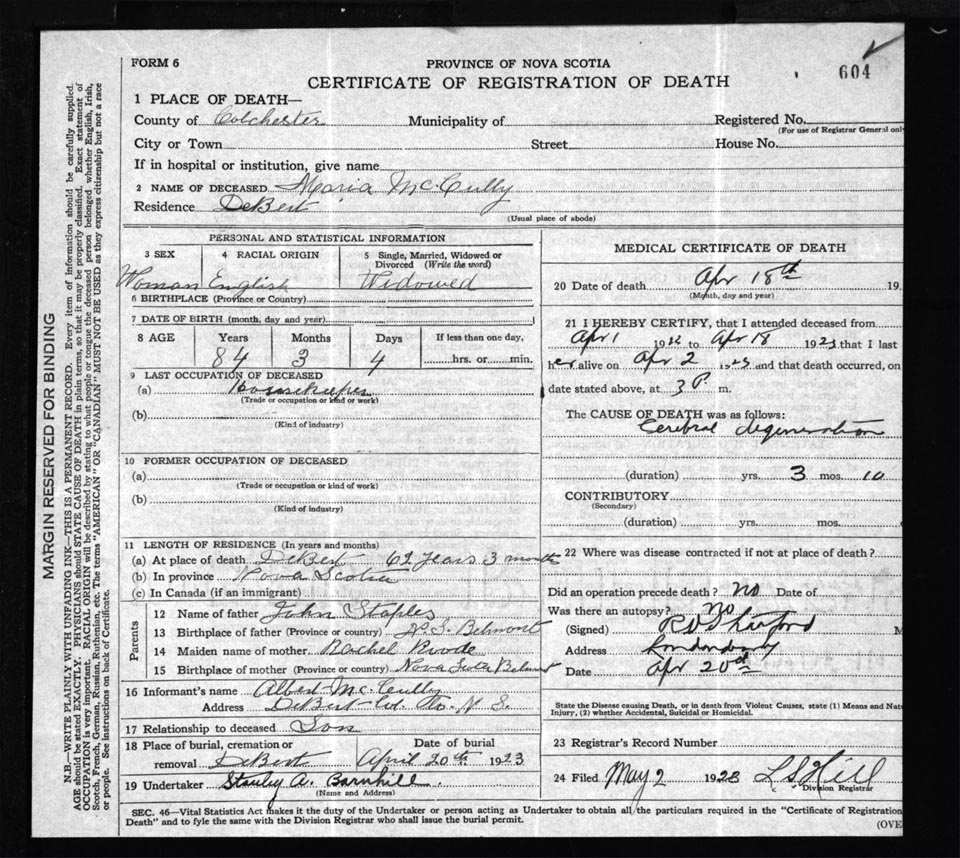 FORM 6
PROVINCE OF NOVA SCOTIA
604
CERTIFICATE OF REGISTRATION OF DEATH
1 PLACE OF DEATH—
County of Colchester Municipality of Registered No.
(For use of Registrar General only
City or Town Street House No.
If in hospital or institution, give name
2 NAME OF DECEASED Maria McCully
Residence DeBert
(Usual place of abode)
PERSONAL AND STATISTICAL INFORMATION
3 SEX 4 RACIAL ORIGIN 5 Single, Married, Widowed or
Divorced (Write the word)
Woman English Widowed
6 BIRTHPLACE (Province or Country)
7 DATE OF BIRTH (month, day and year)
8 AGE Years Months Days If less than one day,
84 3 4 hrs. or min.
9 LAST OCCUPATION OF DECEASED
(a) Housekeeper
(Trade or occupation or kind or work)
(b)
(Kind of industry)
10 FORMER OCCUPATION OF DECEASED
(a)
(Trade or occupation or kind of work)
(b)
(Kind of industry)
11 LENGTH OF RESIDENCE (In years and months)
(a) At place of death DeBert 62 years 3 months
(b) In province Nova Scotia
(c) In Canada (if an immigrant)
Parents
12 Name of father John Staples
13 Birthplace of father (Province or country) N.S. Belmont
14 Maiden name of mother Rachel
15 Birthplace of mother (Province or country) Nova Scotia Belmont
16 Informant's name Albert McCully
Address DeBert Col. Co. N.S.
17 Relationship to deceased Son
18 Place of burial, cremation or Date of burial
removal DeBert April 20th 1923
19 Undertaker Stanley A. Barnhill
(Name and Address)
MEDICAL CERTIFICATE OF DEATH
20 Date of death Apr 18th 19
(Month, day and year)
21 I HEREBY CERTIFY, that I attended deceased from
Apr 1 1922 to Apr 18 1923 that I last
her alive on Apr 2 1923 and that death occurred, on
date stated above, at 3 P. m.
The CAUSE OF DEATH was as follows:
Cerebral degeneration
(duration) yrs. 3 mos. 10
CONTRIBUTORY
(Secondary)
(duration) yrs. mos.
22 Where was disease contracted if not at place of death?
Did an operation precede death? no Date of
Was there an autopsy? no
(Signed) M
Address Londonderry
Date Apr 20
State the Disease causing Death, or in death from Violent Causes, state (1) Means and Nat
Injury, (2) whether Accidental, Suicidal or Homicidal.
23 Registrar's Record Number
24 Filed May 2 1923 L S Hill
Division Registrar
SEC. 46—Vital Statistics Act makes it the duty of the Undertaker or person acting as Undertaker to obtain all the particulars required in the "Certificate of Registration
Death" and to fyle the same with the Division Registrar who shall issue the burial permit.
(OVE
MARGIN RESERVED FOR BINDING
N.B.—WRITE PLAINLY WITH UNFADING INK—THIS IS A PERMANENT RECORD. Every item of information should be carefully supplied.
AGE should be stated EXACTLY. PHYSICIANS should STATE CAUSE OF DEATH in plain terms, so that it may be properly classified. Exact statement of
OCCUPATION is very important. RACIAL ORIGIN will be described by stating to what people or tongue the deceased person belonged whether English, Irish,
Scotch, French, German, Russian, Ruthenian, etc. The terms "AMERICAN" OR "CANADIAN" MUST NOT BE USED as they express citizenship but not a race
or people. See instructions on back of Certificate.